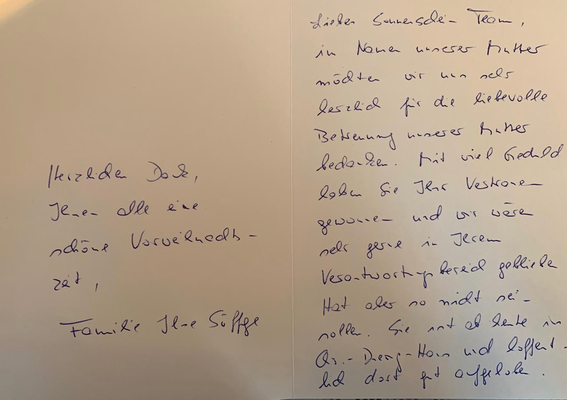 Lieber Sonnenschein-Team,
im Namen unserer Mutter
möchten wir uns sehr
herzlich für die liebevolle
Betreuung unserer Mutter
bedanken. Mit viel Geduld
haben Sie Ihr Vertrauen
gewonnen und wir wären
sehr gerne in Ihrem
Verantwortungsbereich geblieben
Hat aber so nicht sein
sollen. Sie ist ab heute im
Haus und hoffent-
lich dort gut aufgehoben.
Herzlichen Dank,
Ihnen alle eine
schöne Vorweihnachts-
zeit,
Familie